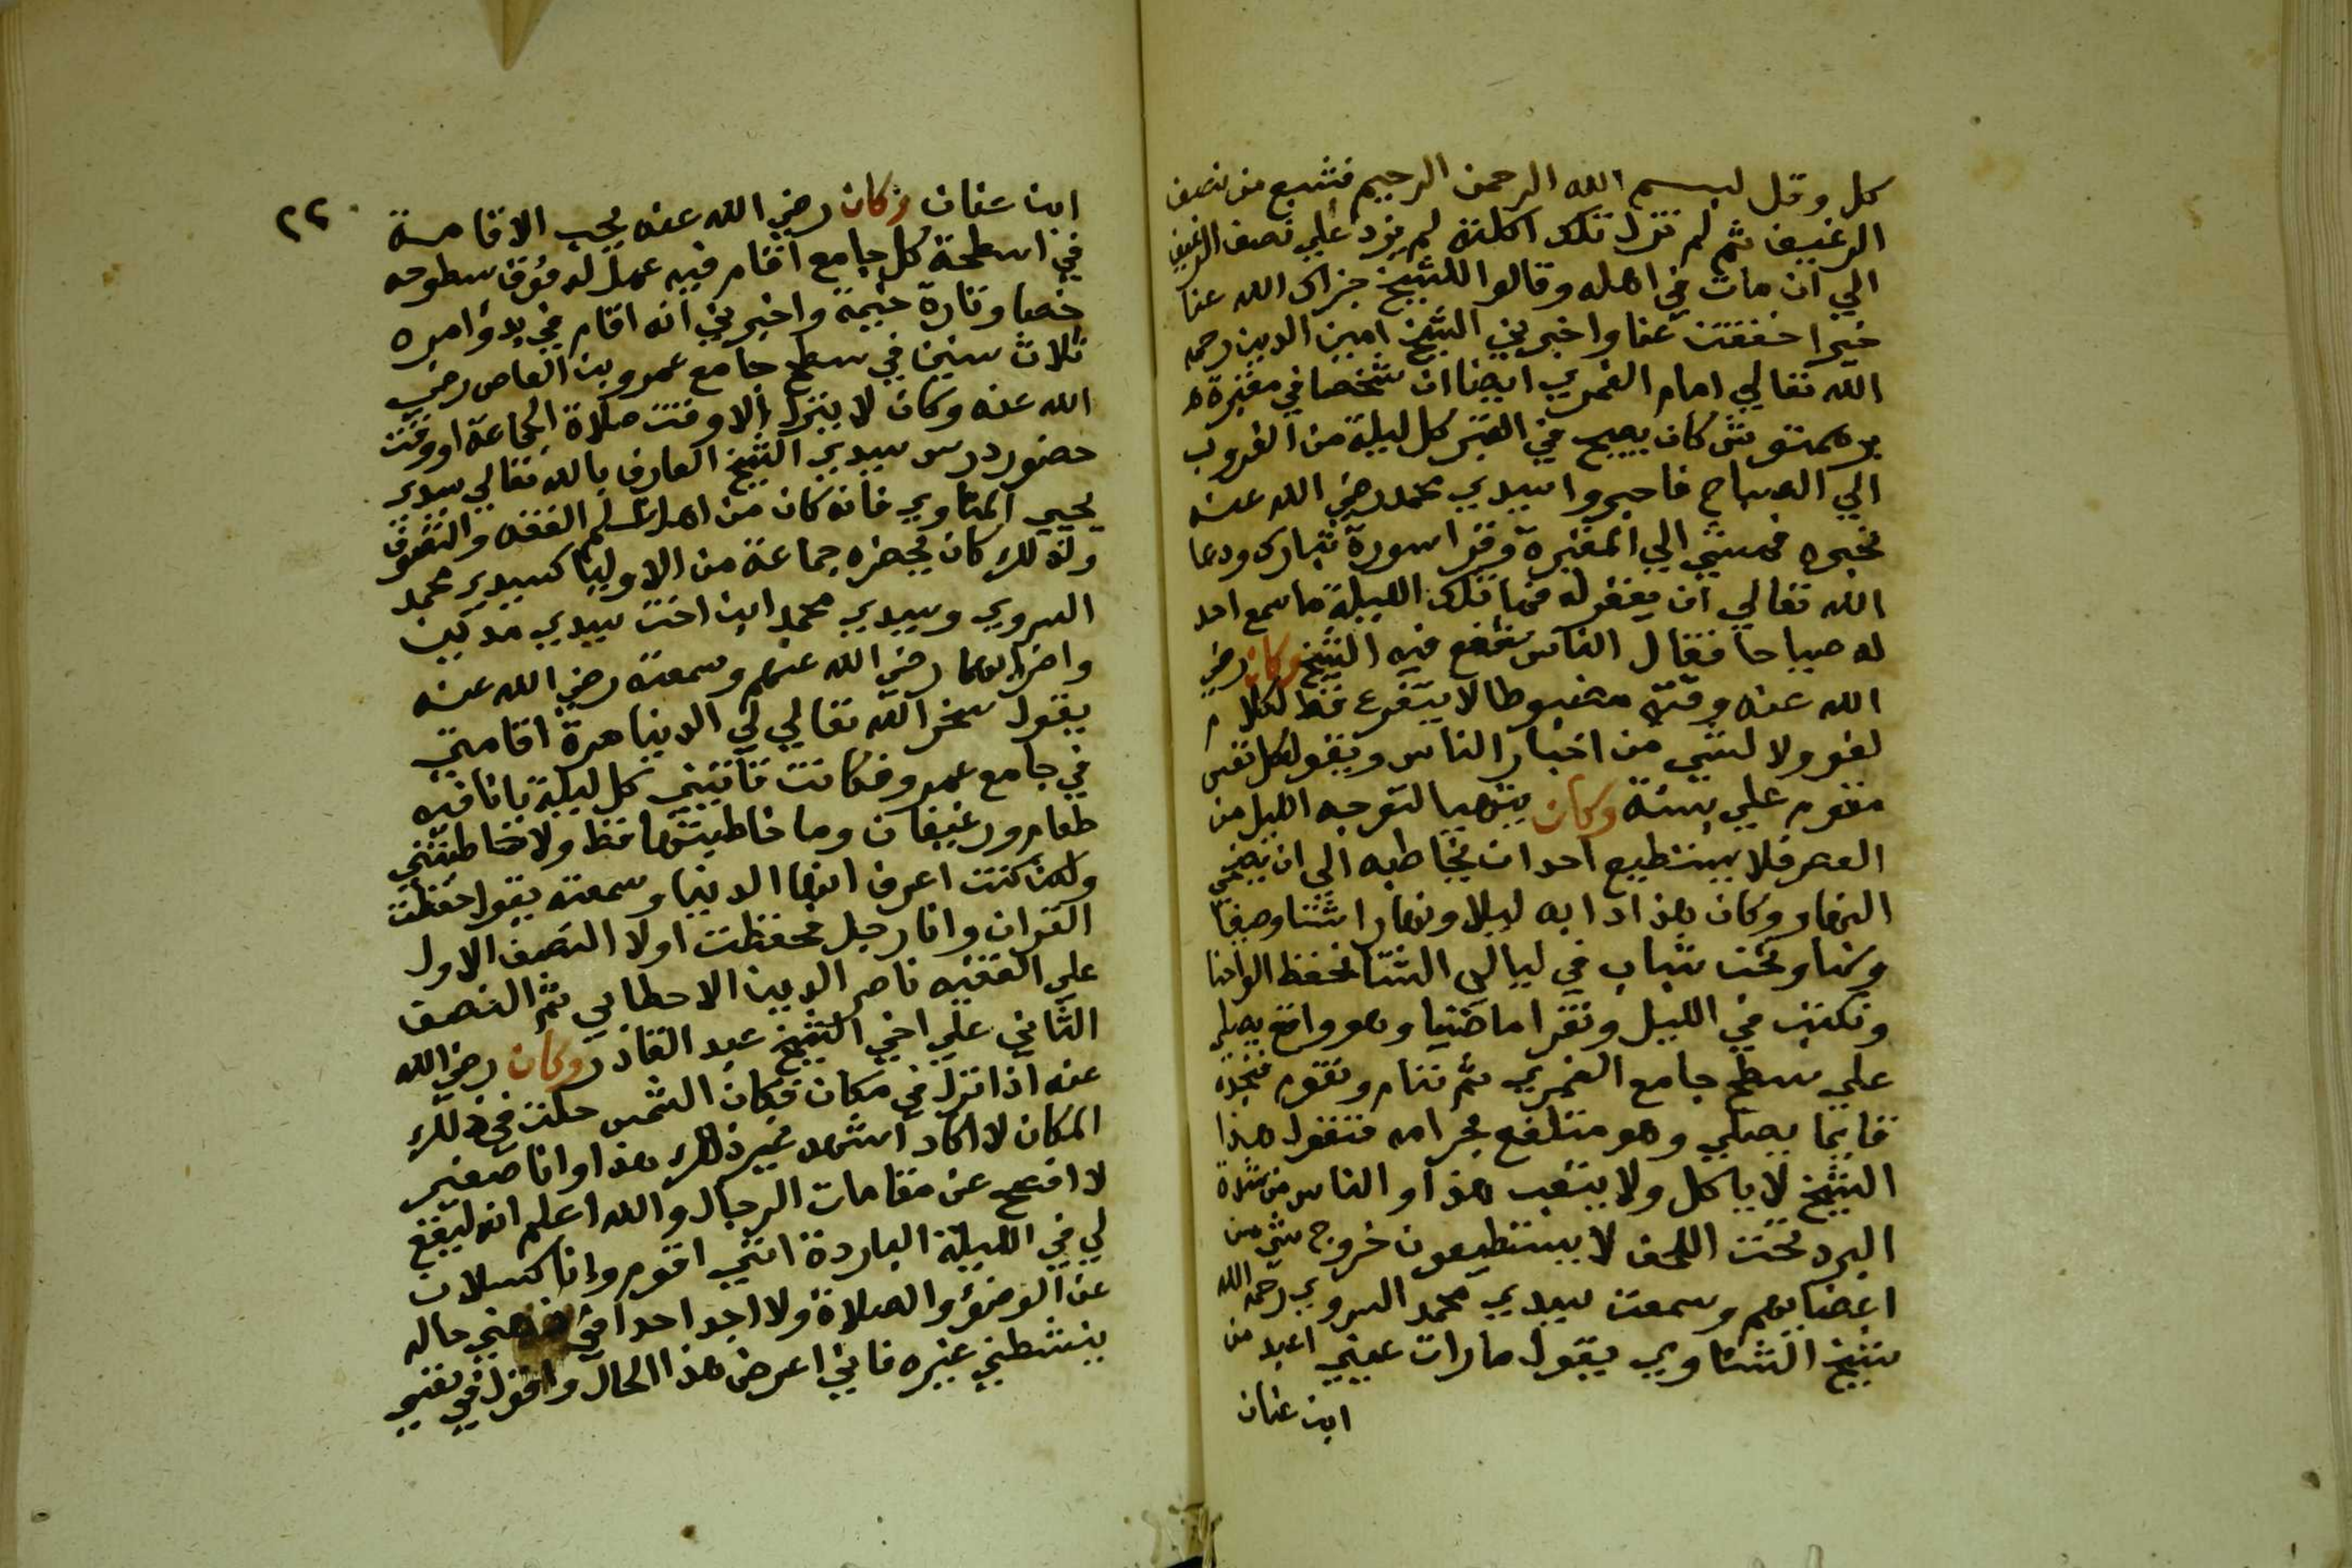 كل وقل لبسم الله الرحمن الرحيم فشبع من نصف
الرغيف ثم لم تزل تلك اكلته لم يزد علي نصف الرغيف
الي ان مات في اهله وقالوا للشيخ جزاك الله عنا
خيرا خففت عنا واخبرني الشيخ امين الدين رحمه
الله تعالي امام الغمري ايضا ان شخصا في مقبرة
برهمتوش كان يصيح في القبر كل ليلة من الغروب
الي الصباح فاخبروا سيدي محمد رضي الله عنه
بخبره فمشي الي المقبرة وقرا سورة تبارك ودعا
الله تعالي ان يغفر له فمن تلك الليلة ما سمع احد
له صياحا فقال الناس شفع فيه الشيخ وكان رضي
الله عنه وقته مضبوطا لا يتفرع قط لكلام
لغو ولا لشي من اخبار الناس ويقول كل نفس
مقوم علي بسنة وكان يتهيا لتوجه الليل من
العصر فلا يستطيع احد ان يخاطبه الي ان يضحي
النهار وكان هذا دابه ليلا ونهارا شتا وصيفا
وكنا ونحن شباب في ليالي الشتا نحفظ الواحنا
ونكتب في الليل ونقرا ماضينا وهو واقف يصلي
علي سطح جامع الغمري ثم ننام ونقوم فنجده
قايما يصلي وهو متلفع بحرامه فنقول هذا
الشيخ لا ياكل ولا يتعب هذا والناس من شدة
البرد تحت اللحف لا يستطيعون خروج شي من
اعضايهم وسمعت سيدي محمد السروي رحمه الله
شيخ الشناوي يقول ما رات عيني اعبد من
ابن عنان
٢٢
ابن عنان وكان رضي الله عنه يحب الاقامة
في اسطحة كل جامع اقام فيه عمل له فوق سطوحه
خصا وتارة خيمة واخبرني انه اقام في بدو امره
ثلاث سنين في سطح جامع عمرو بن العاص رضي
الله عنه وكان لا ينزل الا وقت صلاة الجماعة او وقت
حضور درس سيدي الشيخ العارف بالله تعالي سيدي
يحيي المناوي فانه كان من اهل علم الفقه والتصوف
ولذلك كان يحضره جماعة من الاوليا كسيدي محمد
السروي وسيدي محمد ابن اخت سيدي مدين
واضرابهما رضي الله عنهم وسمعته رضي الله عنه
يقول سخر الله تعالي لي الدنيا مدة اقامتي
في جامع عمرو فكانت تاتيني كل ليلة بانا فيه
طعام ورغيفان وما خاطبتها قط ولا خاطبتني
ولكن كنت اعرف انها الدنيا وسمعته يقول حفظت
القران وانا رجل فحفظت اولا النصف الاول
علي الفقيه ناصر الدين الاحطابي ثم النصف
الثاني علي اخي الشيخ عبد القادر وكان رضي الله
عنه اذا نزل في مكان فكان الشمس حلت في ذلك
المكان لا اكاد اشهد غير ذلك هذا وانا صغير
لا افصح عن مقامات الرجال والله اعلم انه ليقع
لي في الليلة الباردة انني اقوم وانا كسلان
عن الوضؤ والصلاة ولا اجد احدا حاله
ينشطني غيره فاني اعرض هذا الحال واقول في نفسي